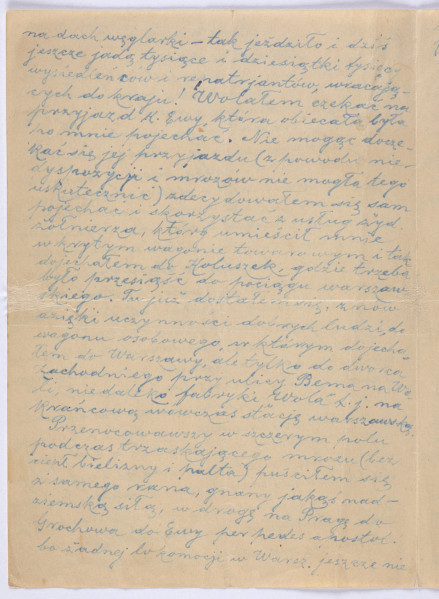 na dach węglarki – tak jeździło i dziś
jeszcze jadą tysiące i dziesiątki tysięcy
wysiedleńców i repatrjantów, wracają-
cych do kraju! Wolałem czekać na
przyjazd K. Ewy, która obiecała była
po mnie pojechać. Nie mogąc docze-
kać się jej przyjazdu (z powodu nie-
dyspozycji i mrozów nie mogła tego
uskutecznić) zdecydowałem się sam
pojechać i skorzystać z usług żyd.
żołnierza, który umieścił mnie
w krytym wagonie towarowym i tak
dojechałem do Koluszek, gdzie trzeba
było przesiąść do pociągu warszaw-
skiego. Tu już dostałem się, znów
dzięki uczynności dobrych ludzi, do
wagonu osobowego, w którym dojecha-
łem do Warszawy, ale tylko do dworca
Zachodniego przy ulicy Bema na Wo-
li, niedaleko fabryki "Wola" t.j. na
krańcową wówczas stację warszawską.
Przenocowawszy w szczerym polu
podczas trzaskającego mrozu (bez
ciepł. bielizny i palta) puściłem się
z samego rana, gnany jakąś nad-
ziemską siłą, w drogę na Pragę do
Grochowa do Ewy per pedes apostol.
bo żadnej lokomocji w Warsz. jeszcze nie